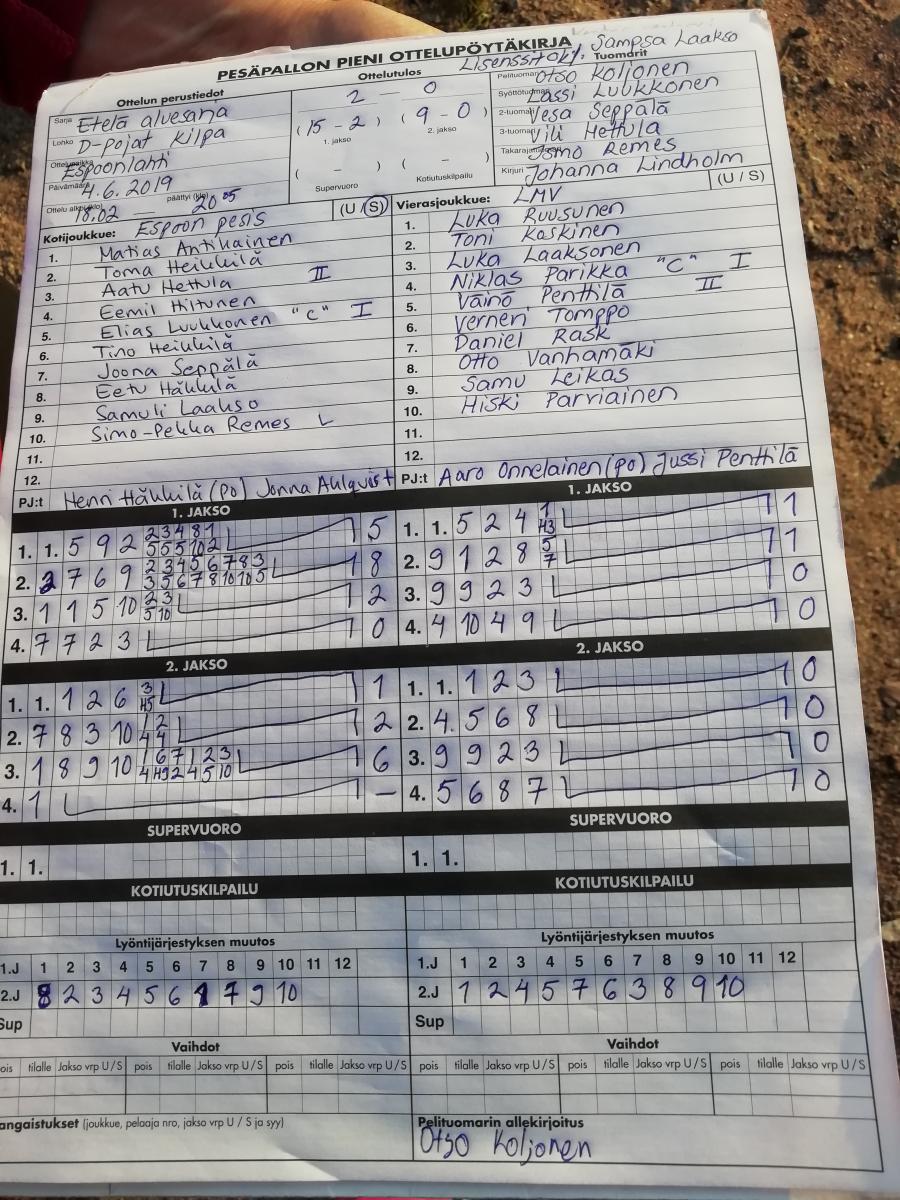 PESÄPALLON PIENI OTTELUPÖYTÄKIRJA
Lisenssitark. Sampsa Laakso
Ottelun perustiedot
Sarja Etelä aluesarja
Lohko D-pojat kilpa
Ottelupaikka Espoonlahti
Päivämäärä 4.6.2019
Ottelu alkoi (klo) 18.02 päättyi (klo) 20 05
Ottelutulos
2 — 0
( 15 - 2 ) ( 9 - 0 )
1. jakso 2. jakso
( - ) ( - )
Supervuoro Kotiutuskilpailu
Tuomarit
Pelituomari Otso Koljonen
Syöttötuomari Lassi Luukkonen
2-tuomari Vesa Seppälä
3-tuomari Vili Hettula
Takarajatuomari Ismo Remes
Kirjuri Johanna Lindholm
Kotijoukkue: Espoon pesis (U / S)
1. Matias Antikainen
2. Toma Heikkilä
3. Aatu Hettula II
4. Eemil Hiltunen
5. Elias Luukkonen "C" I
6. Tino Heikkilä
7. Joona Seppälä
8. Eetu Häkkilä
9. Samuli Laakso
10. Simo-Pekka Remes L
11.
12.
PJ:t Henri Häkkilä (PO) Jonna Ahlqvist
Vierasjoukkue: LMV (U / S)
1. Luka Ruusunen
2. Toni Koskinen
3. Luka Laaksonen
4. Niklas Parikka "C" I
5. Väinö Penttilä II
6. Verneri Tomppo
7. Daniel Rask
8. Otto Vanhamäki
9. Samu Leikas
10. Hiski Parviainen
11.
12.
PJ:t Aaro Onnelainen (po) Jussi Penttilä
1. JAKSO
1. 1. 5 9 2 2 3 4 8 1 5
5 5 5 10 2
2. 2 7 6 9 2 3 4 5 6 7 8 3 8
3 5 6 7 8 10 10 5
3. 1 1 5 10 2 3 2
5 10
4. 7 7 2 3 0
1. JAKSO
1. 1. 5 2 4 1 1
H3
2. 9 1 2 8 5 1
7
3. 9 9 2 3 0
4. 4 10 4 9 0
2. JAKSO
1. 1. 1 2 6 3 1
H5
2. 7 8 3 10 1 2 2
4 4
3. 1 8 9 10 1 6 7 1 2 3 6
4 H9 2 4 5 10
4. 1 -
2. JAKSO
1. 1. 1 2 3 0
2. 4. 5 6 8 0
3. 9 9 2 3 0
4. 5 6 8 7 0
SUPERVUORO
1. 1.
SUPERVUORO
1. 1.
KOTIUTUSKILPAILU
KOTIUTUSKILPAILU
Lyöntijärjestyksen muutos
1.J 1 2 3 4 5 6 7 8 9 10 11 12
2.J 8 2 3 4 5 6 1 7 9 10
Sup
Lyöntijärjestyksen muutos
1.J 1 2 3 4 5 6 7 8 9 10 11 12
2.J 1 2 4 5 7 6 3 8 9 10
Sup
Vaihdot
ois tilalle Jakso vrp U / S pois tilalle Jakso vrp U / S pois tilalle Jakso vrp U / S
Vaihdot
pois tilalle Jakso vrp U / S pois tilalle Jakso vrp U / S pois tilalle Jakso vrp U / S
angaistukset (joukkue, pelaaja nro, jakso vrp U / S ja syy)
Pelituomarin allekirjoitus
Otso Koljonen